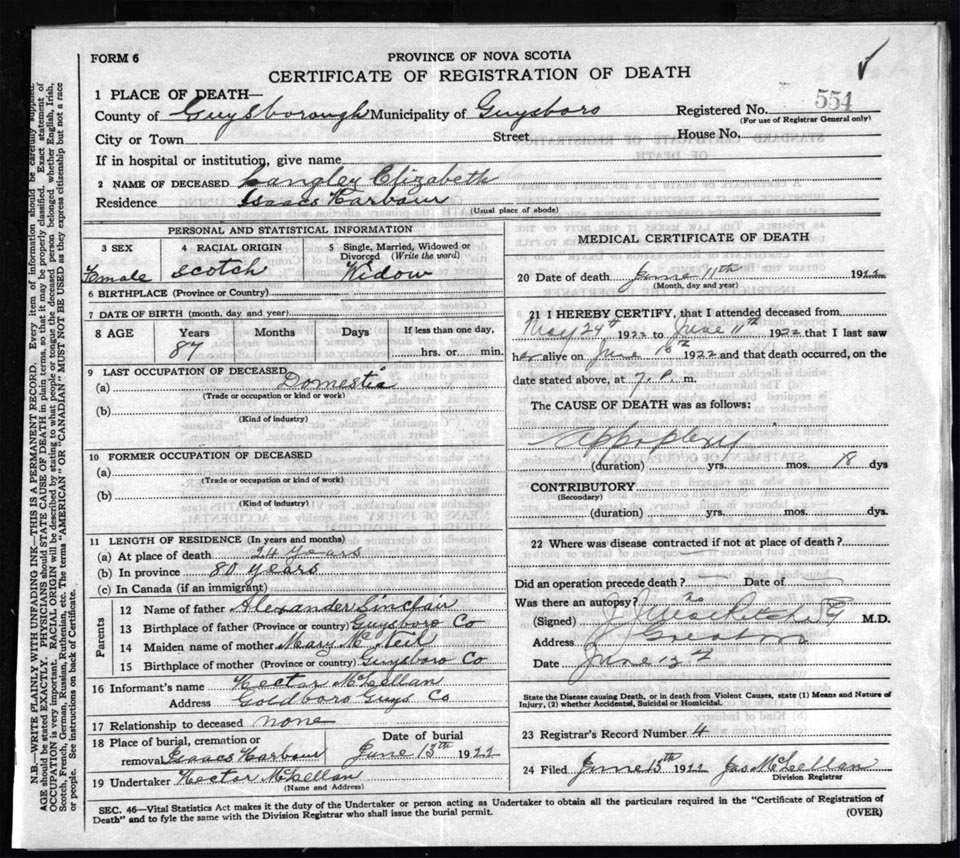 FORM 6
PROVINCE OF NOVA SCOTIA
CERTIFICATE OF REGISTRATION OF DEATH
1 PLACE OF DEATH—
County of Guysborough Municipality of Guysboro Registered No. 554
(For use of Registrar General only)
City or Town Street House No.
If in hospital or institution, give name
2 NAME OF DECEASED Langley Elizabeth
Residence Isaacs Harbour
(Usual place of abode)
PERSONAL AND STATISTICAL INFORMATION
3 SEX 4 RACIAL ORIGIN 5 Single, Married, Widowed or Divorced (Write the word)
Female Scotch Widow
6 BIRTHPLACE (Province or Country)
7 DATE OF BIRTH (month, day and year)
8 AGE Years Months Days If less than one day,
87 hrs. or min.
9 LAST OCCUPATION OF DECEASED
(a) Domestic
(Trade or occupation or kind or work)
(b)
(Kind of industry)
10 FORMER OCCUPATION OF DECEASED
(a)
(Trade or occupation or kind of work)
(b)
(Kind of industry)
11 LENGTH OF RESIDENCE (In years and months)
(a) At place of death 24 years
(b) In province 80 years
(c) In Canada (if an immigrant)
Parents
12 Name of father Alexander Sinclair
13 Birthplace of father (Province or country) Guysboro Co
14 Maiden name of mother Mary McNeil
15 Birthplace of mother (Province or country) Guysboro Co
16 Informant's name Hector McLellan
Address Goldboro Guys Co
17 Relationship to deceased none
18 Place of burial, cremation or Date of burial
removal Isaacs Harbour June 13th 1922
19 Undertaker Hector McLellan
(Name and Address)
MEDICAL CERTIFICATE OF DEATH
20 Date of death June 11th 1922
(Month, day and year)
21 I HEREBY CERTIFY, that I attended deceased from
May 24th 1922 to June 11th 1922 that I last saw
her alive on June 1922 and that death occurred, on the
date stated above, at 7. P. m.
The CAUSE OF DEATH was as follows:
Appoplexy
(duration) yrs. mos. 18 dys
CONTRIBUTORY
(Secondary)
(duration) yrs. mos. dys.
22 Where was disease contracted if not at place of death?
Did an operation precede death? — Date of —
Was there an autopsy? no
(Signed) M.D.
Address
Date June
State the Disease causing Death, or in death from Violent Causes, state (1) Means and Nature of
Injury, (2) whether Accidental, Suicidal or Homicidal.
23 Registrar's Record Number 4
24 Filed June 15th 1922 Jas McLellan
Division Registrar
SEC. 46—Vital Statistics Act makes it the duty of the Undertaker or person acting as Undertaker to obtain all the particulars required in the "Certificate of Registration of
Death" and to fyle the same with the Division Registrar who shall issue the burial permit. (OVER)
N.B.—WRITE PLAINLY WITH UNFADING INK—THIS IS A PERMANENT RECORD. Every item of information should be carefully supplied.
AGE should be stated EXACTLY. PHYSICIANS should STATE CAUSE OF DEATH in plain terms, so that it may be properly classified. Exact statement of
OCCUPATION is very important. RACIAL ORIGIN will be described by stating to what people or tongue the deceased person belonged whether English, Irish,
Scotch, French, German, Russian, Ruthenian, etc. The terms "AMERICAN" OR "CANADIAN" MUST NOT BE USED as they express citizenship but not a race
or people. See instructions on back of Certificate.